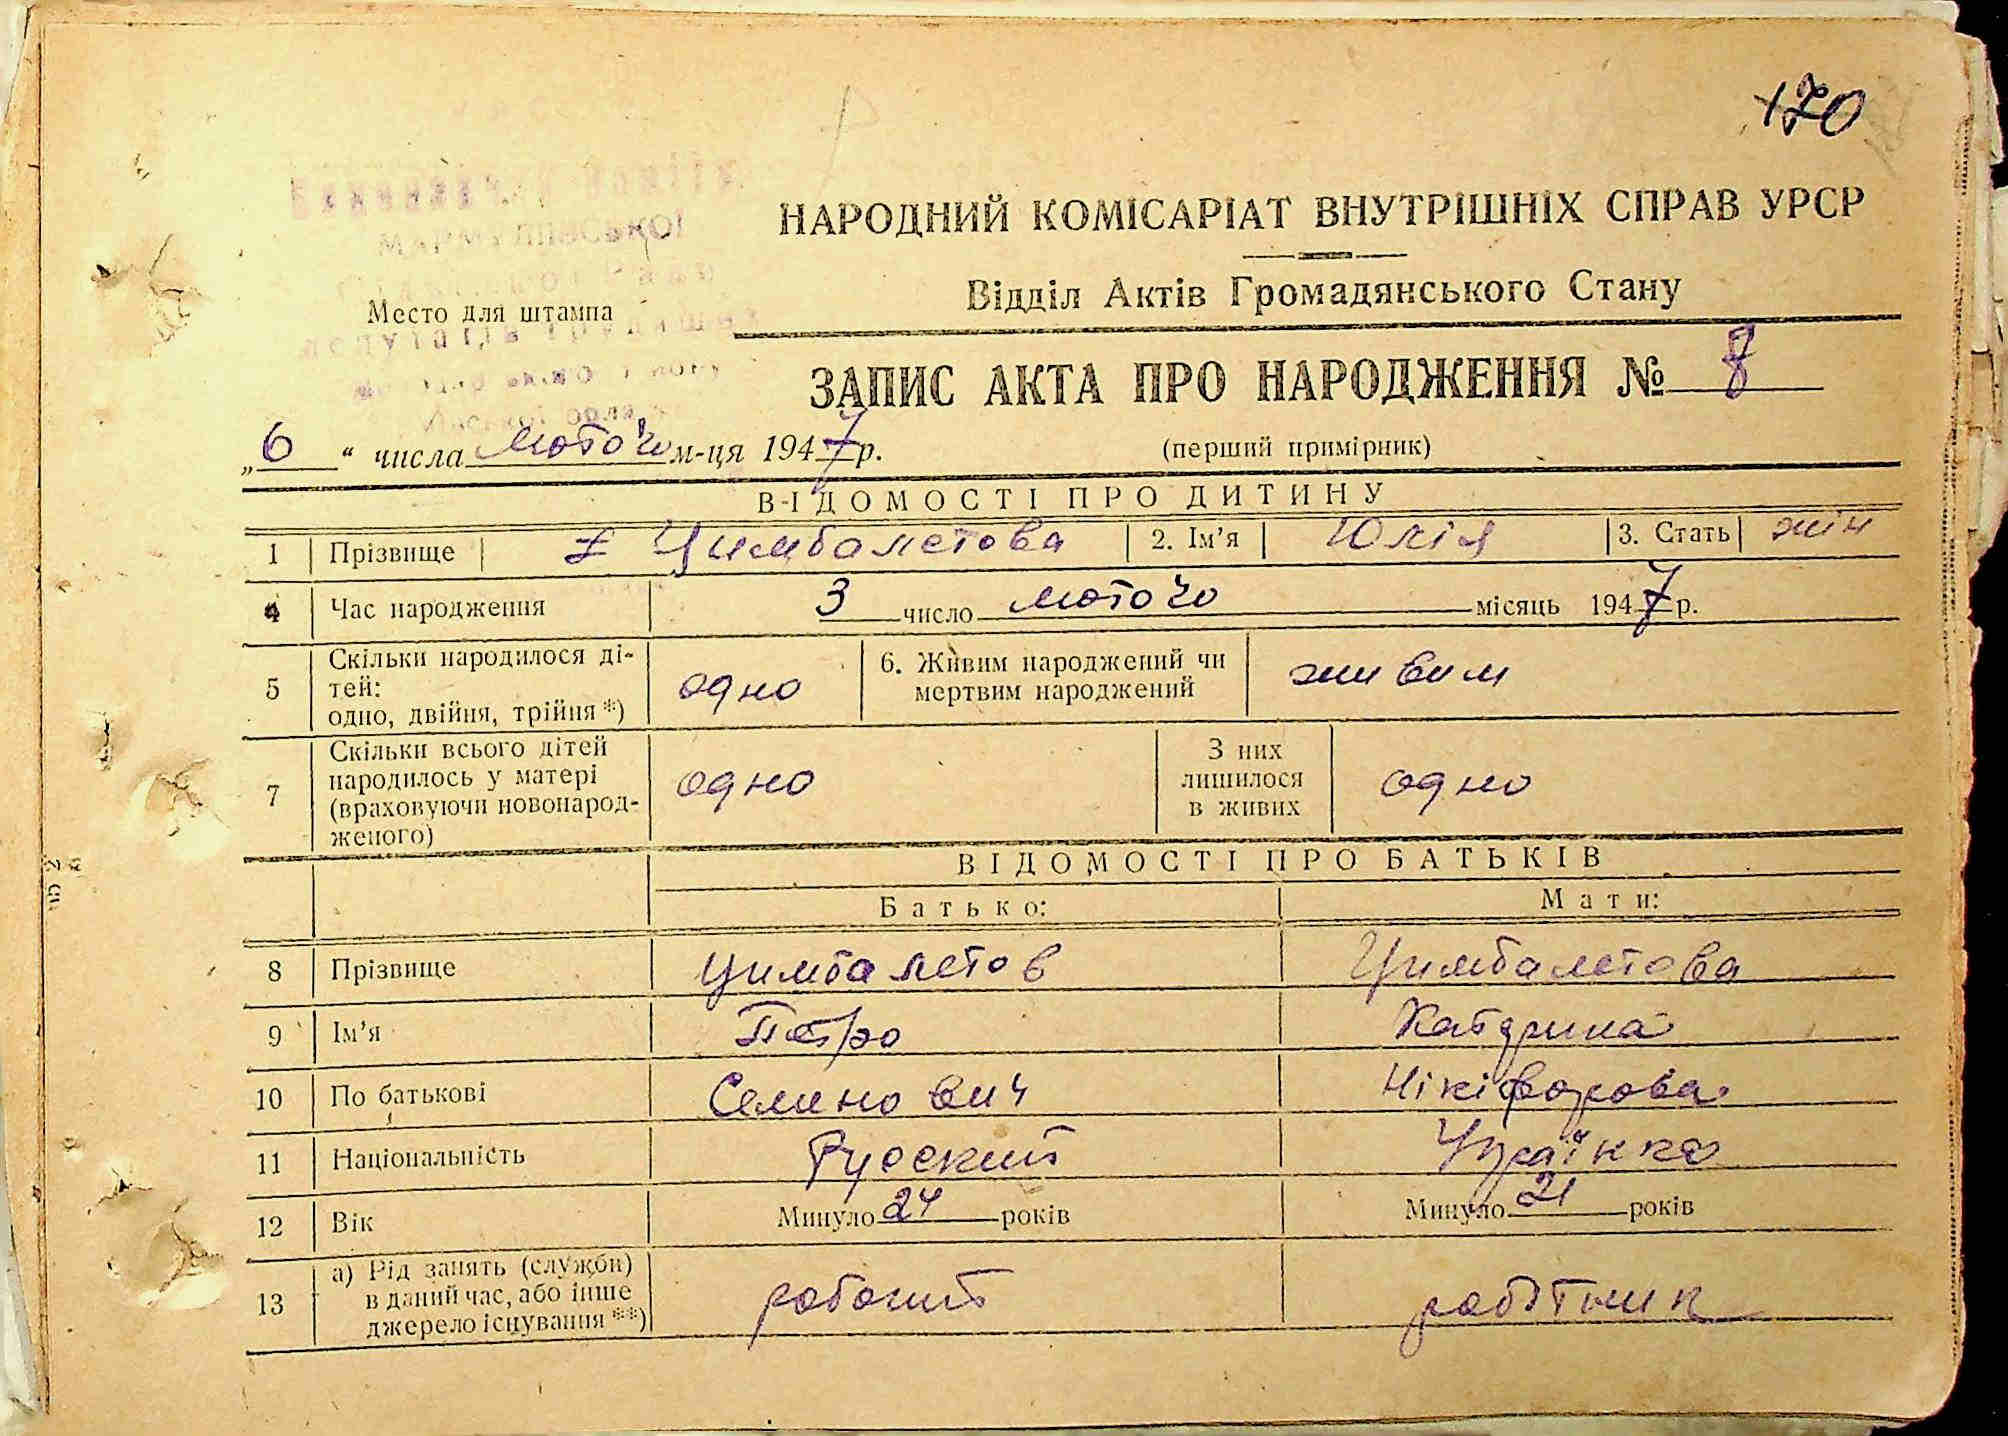 170
НАРОДНИЙ КОМІСАРІАТ ВНУТРІШНІХ СПРАВ УРСР
Відділ Актів Громадянського Стану
Место для штампа
ЗАПИС АКТА ПРО НАРОДЖЕННЯ № 8
„6“ числа лютого м-ця 1947 р. (перший примірник)
ВІДОМОСТІ ПРО ДИТИНУ
1 Прізвище Цимбалєтова 2. Ім'я Юлія 3. Стать жін
4 Час народження 3 число лютого місяць 1947 р.
5 Скільки народилося ді-
тей:
одно, двійня, трійня *) одно 6. Живим народжений чи
мертвим народжений живим
7 Скільки всього дітей
народилось у матері
(враховуючи новонарод-
женого) одно З них
лишилося
в живих одно
ВІДОМОСТІ ПРО БАТЬКІВ
Батько: Мати:
8 Прізвище Цимбалетов Цимбалетова
9 Ім'я Петро Катерина
10 По батькові Семенович Нікіфорова
11 Національність Руский Українка
12 Вік Минуло 24 років Минуло 21 років
13 а) Рід занять (служби)
в даний час, або інше
джерело існування **) рабочий робітник